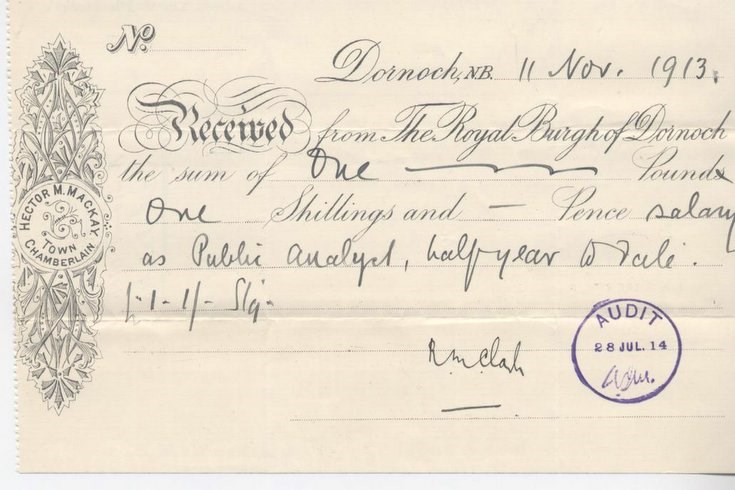 No.
Dornoch, N.B. 11 Nov. 1913.
Received from The Royal Burgh of Dornoch
the sum of One Pounds
One Shillings and — Pence salary
as Public Analyst, half year to date.
£1-1/- Stg.
R.M. Clark
HECTOR M. MACKAY
TOWN
CHAMBERLAIN
AUDIT
28 JUL. 14